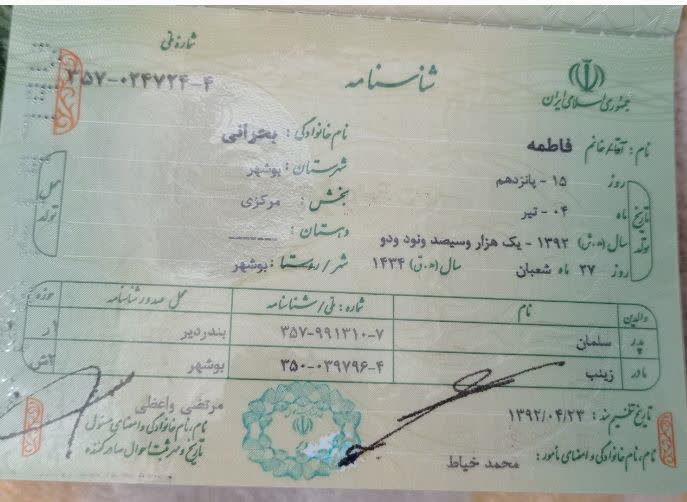 شماره ملی
۳۵۷-۰۲۴۷۲۴-۴
شناسنامه
جمهوری اسلامی ایران
نام : آقا/خانم فاطمه
نام خانوادگی : بحرانی
تاریخ تولد
روز ۱۵ - پانزدهم
ماه ۰۴ - تیر
سال (ه.ش) ۱۳۹۲ - یک هزار وسیصد ونود ودو
روز ۲۷ ماه شعبان سال (ه.ق) ۱۴۳۴
محل تولد
شهرستان : بوشهر
بخش : مرکزی
دهستان : ------
شهر / روستا : بوشهر
والدین نام شماره : ملی / شناسنامه محل صدور شناسنامه حوزه
پدر سلمان ۳۵۷-۹۹۱۳۱۰-۷ بندردیر ۱ر
مادر زینب ۳۵۰-۰۳۹۷۹۶-۴ بوشهر ۲ش
تاریخ تنظیم سند : ۱۳۹۲/۰۴/۲۳
نام، نام خانوادگی و امضای مأمور : محمد خیاط
مرتضی واعظی
نام، نام خانوادگی و امضای مسئول
تاریخ و مهر ثبت احوال صادرکننده